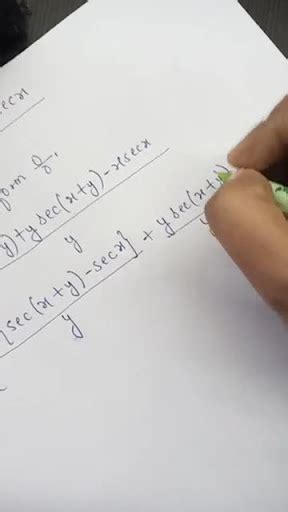 sec x
form 0/0.
y) + y sec(x+y) - x sec x
y
[sec(x+y) - sec x] + y sec(x+y)
y